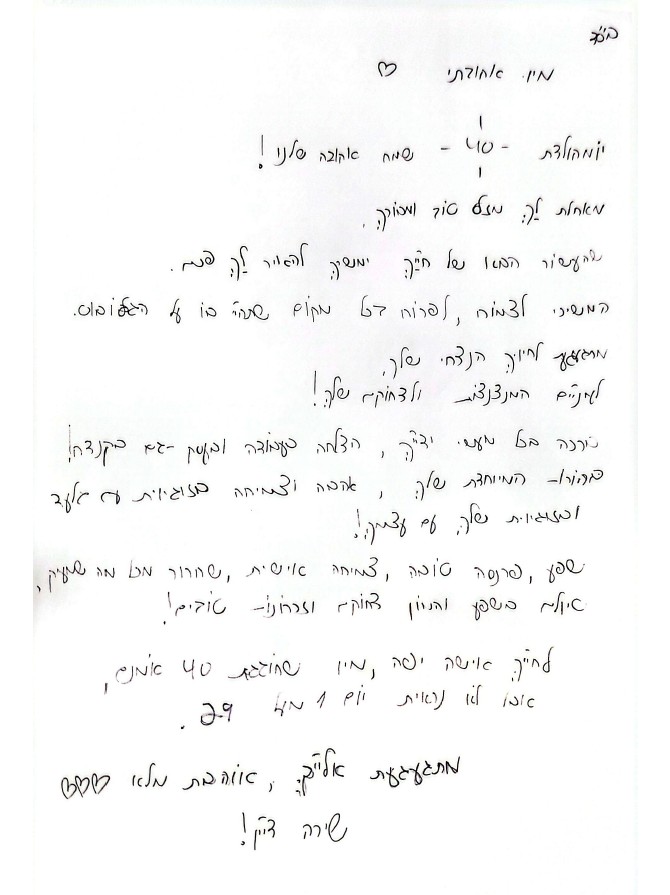 בס״ד
מיו אהובתי ♡
יומהולדת -40- שמח אהובה שלנו!
מאחלת לַךְ מזל טוב ומבורך,
שהעשור הבא של חייַךְ ימשיך להאיר לַךְ פנים.
המשיכי לצמוח, לפרוח בכל מקום שתהיי בו על הגלובוס.
מתגעגעת לחיוך הנצחי שלך,
לעיניים המנצנצות ולצחוק שלך!
ברכה בכל מעשי ידייך, הצלחה בעבודה ובעסק -גם בקנדה!
בהורות המיוחדת שלך, אהבה וצמיחה בזוגיות עם אלעד
ובזוגיות שלך עם עצמך!
שפע, פרנסה טובה, צמיחה אישית, שחרור מכל מה שמעיק,
בשפע והמון צחוק וזכרונות טובים!
לחייך אישה יפה, מיו שחוגגת 40 אומנם,
אבל לא נראית יום 1 מעל 29.
מתגעגעת אלייך, אוהבת מלא ♡♡♡
שירה דיין!